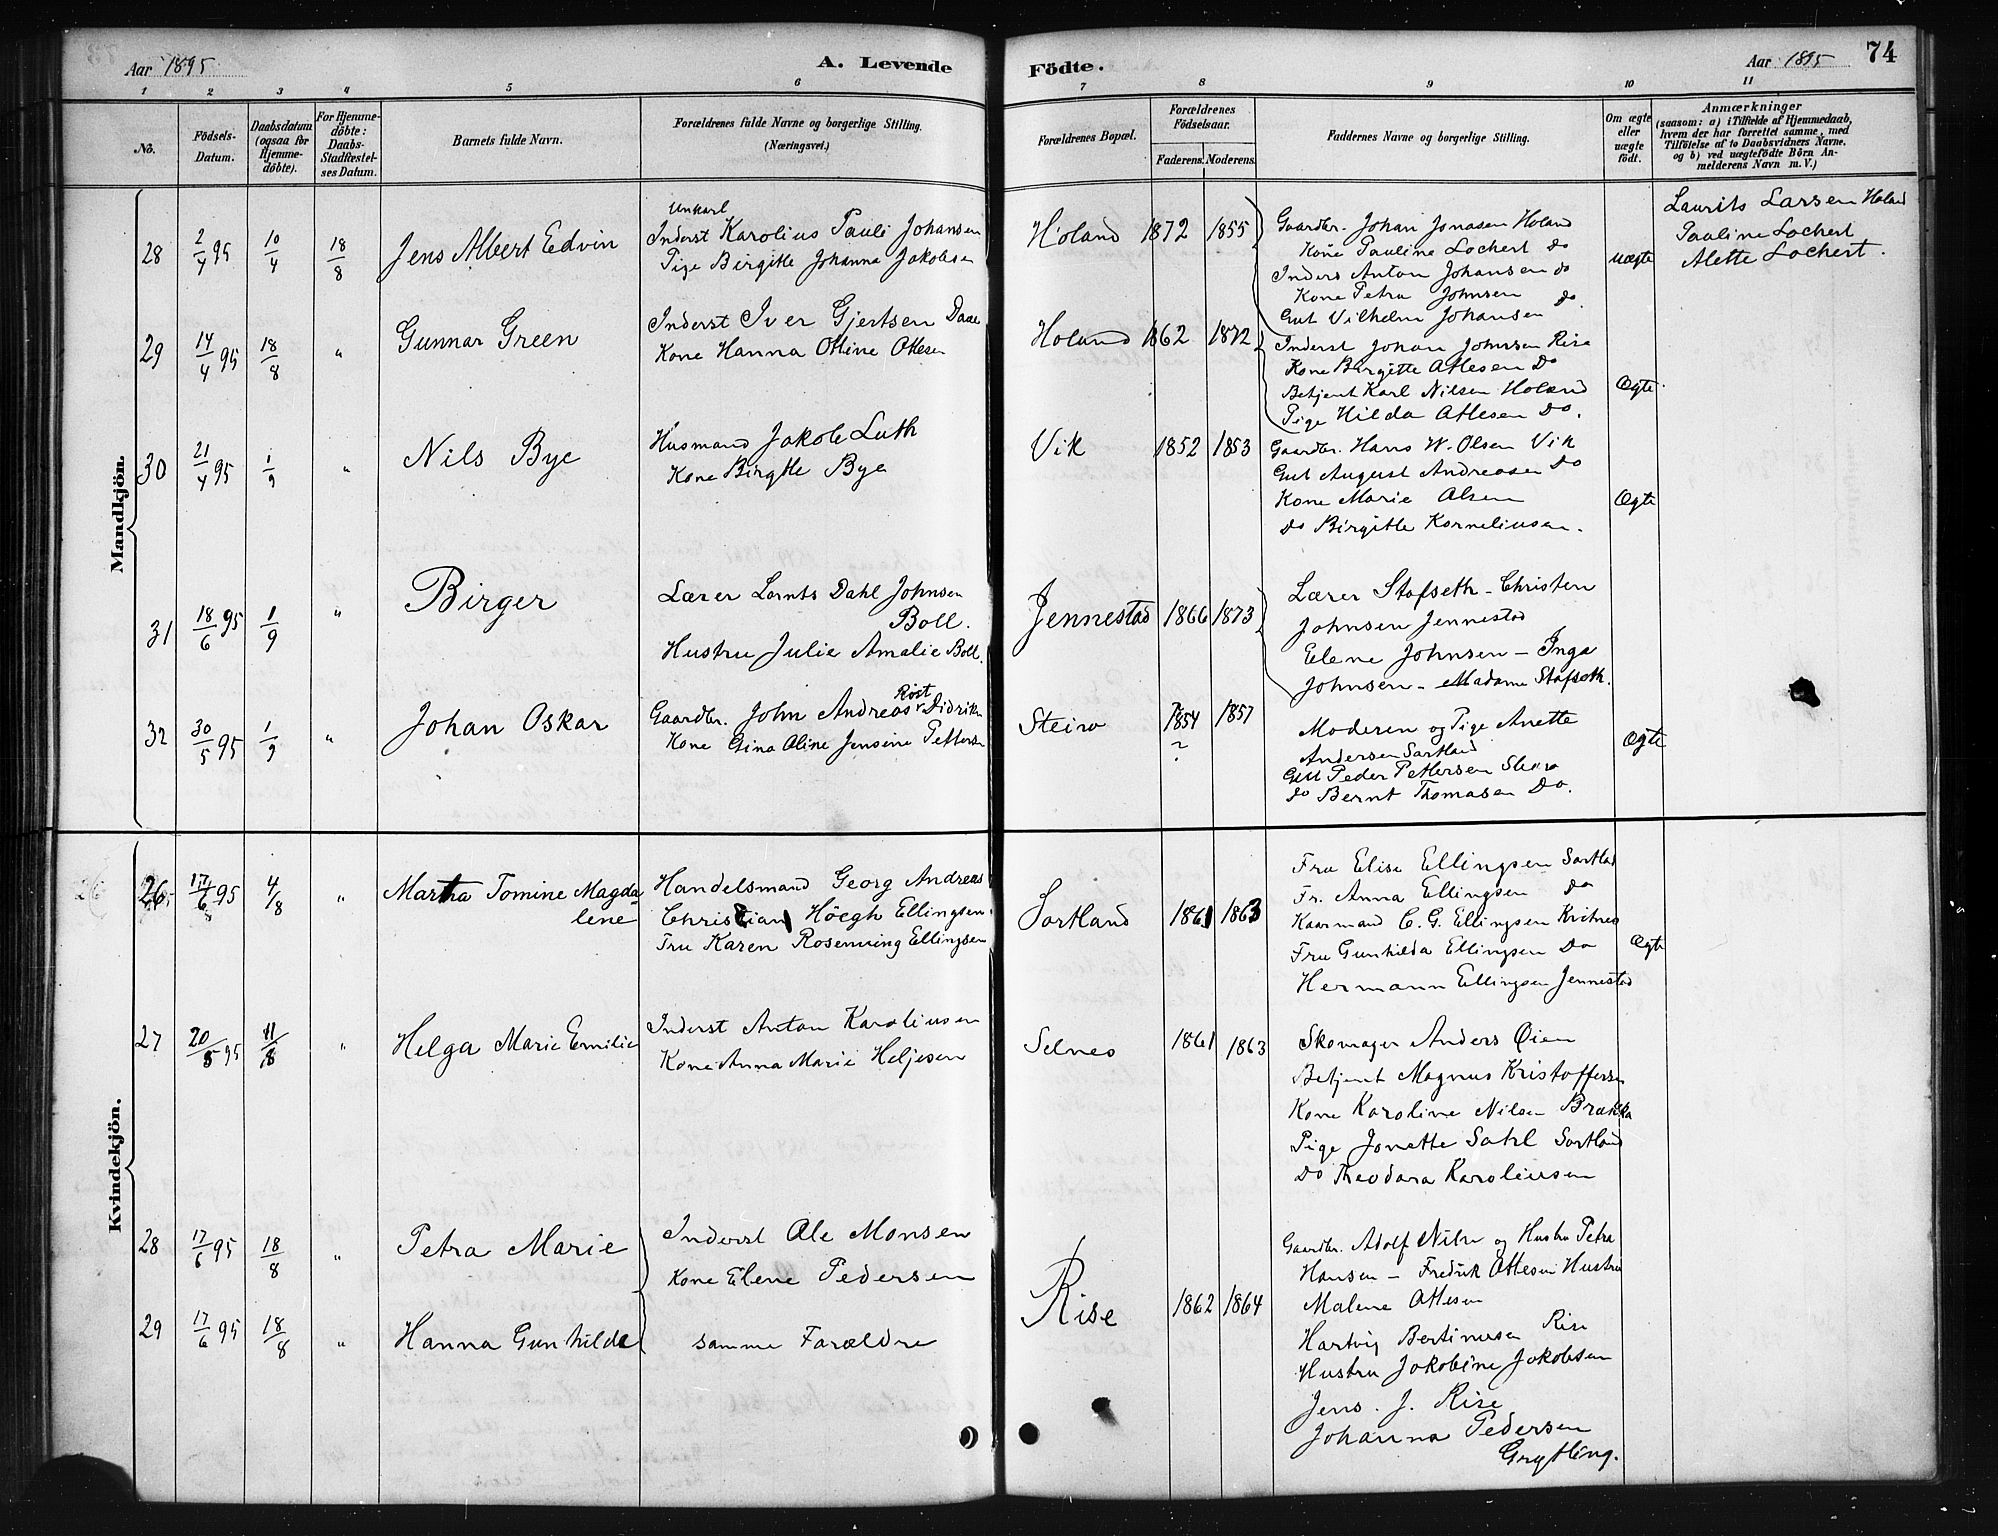 Aar 1895
A. Levende
Födte.
Aar 1895
74
1 2 3 4 5 6 7 8 9 10 11
No.
Födsels-Datum.
Daabsdatum (ogsaa for Hjemme-döbte).
For Hjemme-döbte: Daabs-Stadfæstel-ses Datum.
Barnets fulde Navn.
Forældrenes fulde Navne og borgerlige Stilling.
(Næringsvei.)
Forældrenes Bopæl.
Forældrenes Födselsaar.
Faderens. Moderens.
Faddernes Navne og borgerlige Stilling.
Om ægte eller uægte födt.
Anmærkninger
(saasom: a) i Tilfælde af Hjemmedaab,
hvem der har forrettet samme, med
Tilföielse af to Daabsvidners Navne,
og b) ved uægtefödte Börn An-
melderens Navn m. V.)
Mandkjön.
28 2/4 95 10/4 18/8 Jens Albert Edvin
Unkarl
Inderst Karolius Pauli Johansen
Pige Birgitte Johanna Jakobsen
Holand 1872 1855
Gaardbr. Johan Jonasen Holand
Kone Pauline Lochert Do
Inders Anton Johansen do
Kone Petra Johnsen Do
Gut Vilhelm Johansen Do.
uægte
Laurits Larsen Holand
Pauline Lochert
Alette Lochert.
29 14/4 95 18/8 " Gunnar Green
Inderst Iver Gjertsen Daae
Kone Hanna Ottine Ottesen
Holand 1862 1872
Inderst Johan Johnsen Rise
Kone Birgitte Ottesen Do
Betjent Karl Nilsen Holand
Pige Hilda Ottesen Do.
Ægte.
30 21/4 95 1/9 " Nils Bye
Husmand Jakob Luth
Kone Birgitte Bye
Vik 1852 1853
Gaardbr. Hans W. Olsen Vik
Gut August Andreasen Do
Kone Marie Olsen
Do Birgitte Korneliusen.
Ægte
31 18/6 95 1/9 " Birger
Lærer Lornts Dahl Johnsen
Boll.
Hustru Julie Amalie Boll.
Jennestad 1866 1873
Lærer Stofseth - Christen
Johnsen Jennestad
Elene Johnsen - Inga
Johnsen - Madame Stofseth.
32 30/5 95 1/9 " Johan Oskar
Röst
Gaardbr. John Andreas Didriksen
Kone Gina Oline Jensine Pettersen
Steiro 1854 1857
?
Moderen og Pige Anette
Andersen Sortland
Gut Peder Pettersen Steiro
do Bernt Thomasen Do.
Ægte
Kvindekjön.
26 17/6 95 4/8 " Martha Tomine Magda-
lene
Handelsmand Georg Andreas
Christian Höegh Ellingsen
Fru Karen Rosenving Ellingsen
Sortland 1861 1863
Fru Elise Ellingsen Sortland
Fr. Anna Ellingsen Do
Kaarmand C. G. Ellingsen
Fru Gunhilda Ellingsen Do
Hermann Ellingsen Jennestad
Ægte
27 20/5 95 11/8 " Helga Marie Emilie
Inderst Anton Karoliusen
Kone Anna Marie Heljesen
Selnes 1861 1863
Skomager Anders Öien
Betjent Magnus Kristoffersen
Kone Karoline Nilsen Brækka
Pige Jonette Dahl Sortland
Do Theodora Karoliusen
28 17/6 95 18/8 " Petra Marie
Inderst Ole Monsen
Kone Elene Pedersen
29 17/6 95 18/8 " Hanna Gunhilde
samme Forældre
Rise 1862 1864
Gaardbr. Adolf Nilsen og Hustru Petra
Hansen - Fredrik Ottesen Hustru
Malene Ottesen
Hartvig Bertinusen Rise
Hustru Jakobine Jakobsen
Jens. J. Rise
Johanna Pedersen
Grytting.